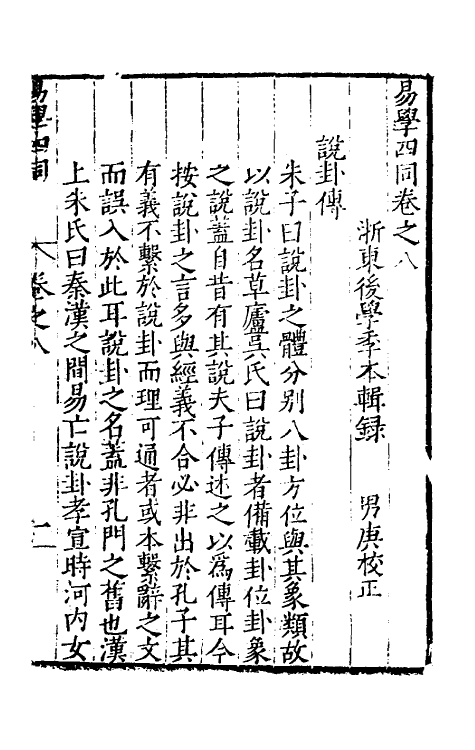 易學四同卷之八
浙東後學季本輯錄　男庚校正
說卦傳
朱子曰說卦之體分别八卦方位與其象類故
以說卦名草廬吳氏曰說卦者備載卦位卦象
之說蓋自昔有其說夫子傳述之以爲傳耳今
按說卦之言多與經義不合必非出於孔子其
有義不繫於說卦而理可通者或本繫辭之文
而誤入於此耳說卦之名蓋非孔門之舊也漢
上朱氏曰秦漢之間易亡說卦孝宣時河内女
易學四同
卷之八
一